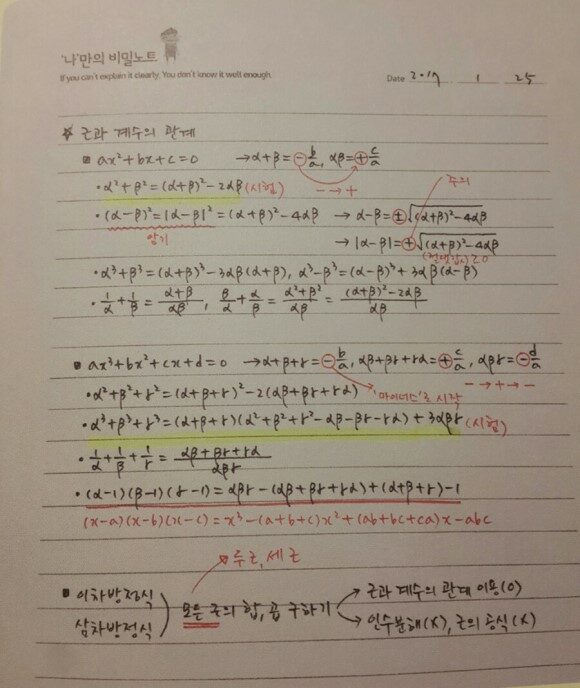 '나'만의 비밀노트
If you can't explain it clearly, You don't know it well enough.
Date 2017 . 1 . 25
☆ 근과 계수의 관계
■ ax²+bx+c=0 → α+β=⊖b/a, αβ=⊕c/a
·α²+β²=(α+β)²-2αβ (시험) - → + 주의
·(α-β)²=|α-β|²=(α+β)²-4αβ → α-β=±√((α+β)²-4αβ)
암기 → |α-β|=⊕√((α+β)²-4αβ)
(절댓값)≥0
·α³+β³=(α+β)³-3αβ(α+β), α³-β³=(α-β)³+3αβ(α-β)
·1/α+1/β=(α+β)/αβ, β/α+α/β=(α²+β²)/αβ=((α+β)²-2αβ)/αβ
■ ax³+bx²+cx+d=0 → α+β+γ=⊖b/a, αβ+βγ+γα=⊕c/a, αβγ=⊖d/a
·α²+β²+γ²=(α+β+γ)²-2(αβ+βγ+γα) '마이너스'로 시작 - → + → -
·α³+β³+γ³=(α+β+γ)(α²+β²+γ²-αβ-βγ-γα)+3αβγ (시험)
·1/α+1/β+1/γ=(αβ+βγ+γα)/αβγ
·(α-1)(β-1)(γ-1)=αβγ-(αβ+βγ+γα)+(α+β+γ)-1
(x-a)(x-b)(x-c)=x³-(a+b+c)x²+(ab+bc+ca)x-abc
두근, 세근
■ 이차방정식
삼차방정식
) 모든 근의 합, 곱 구하기
→ 근과 계수의 관계 이용(O)
→ 인수분해(X), 근의 공식(X)